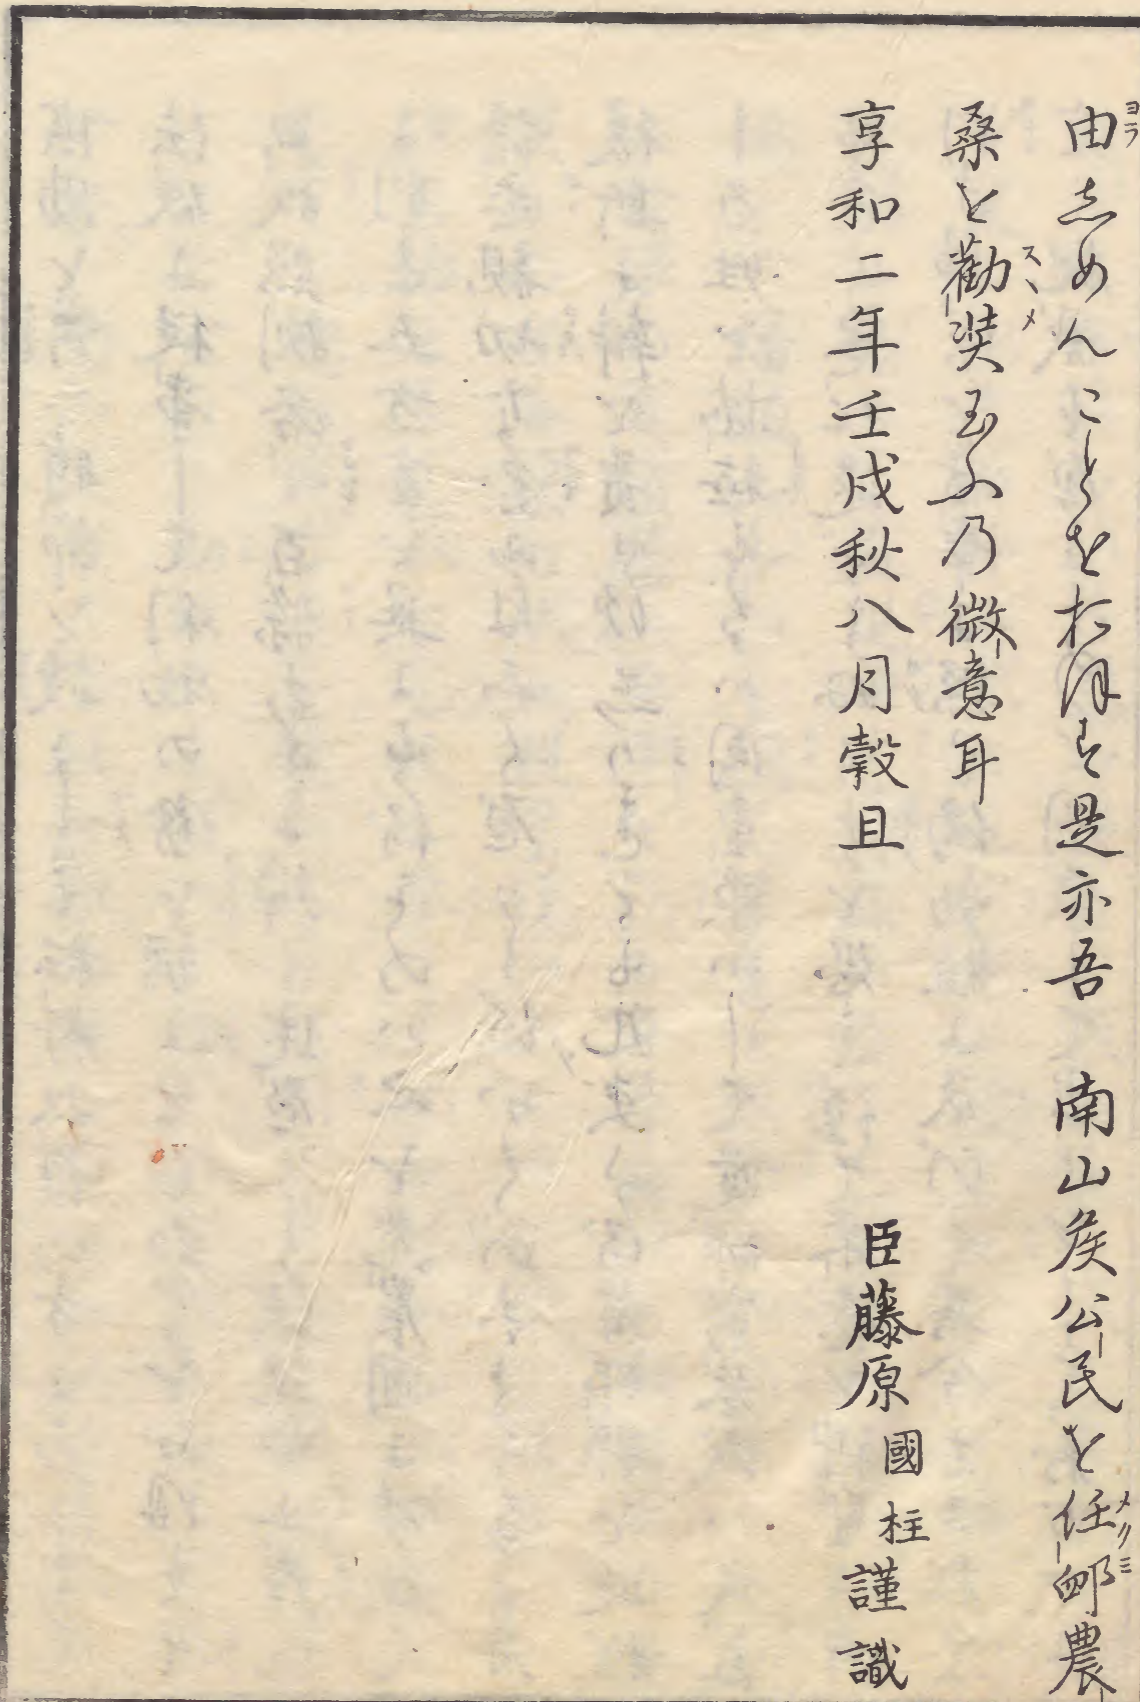 由志めんことを於保す是亦吾　南山侯公民を任卹農
桑を勸奨玉ふ乃微意耳
享和二年壬戌秋八月穀且
臣藤原國柱謹識